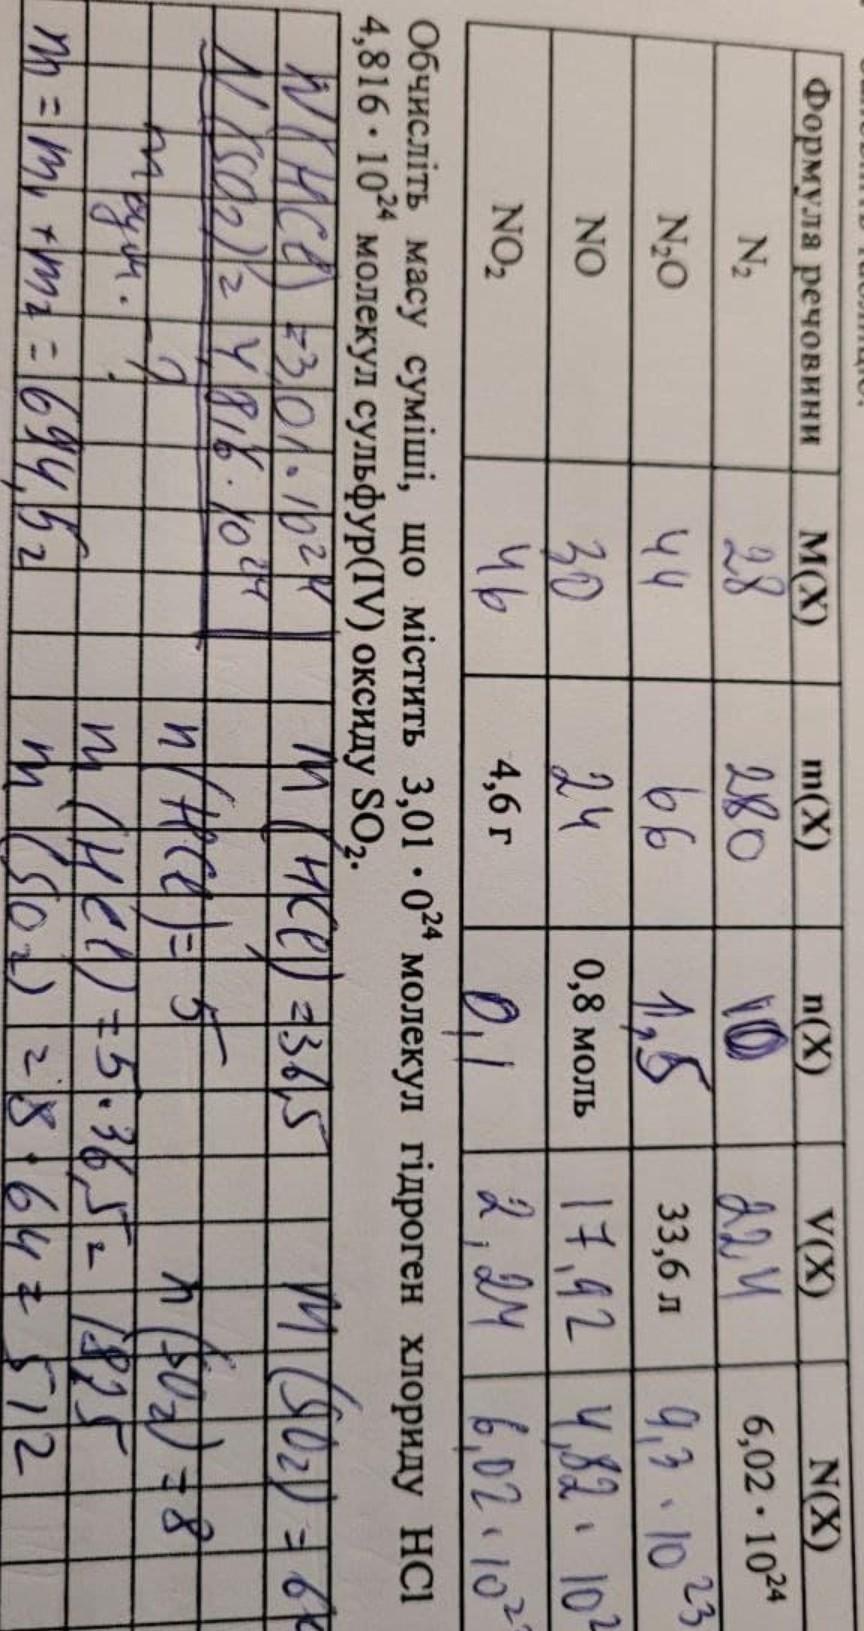 Формула речовини M(X) m(X) n(X) V(X) N(X)
N₂ 28 280 10 224 6,02 · 10²⁴
N₂O 44 66 1,5 33,6 л 9,3 · 10²³
NO 30 24 0,8 моль 17,92 4,82 · 10²
NO₂ 46 4,6 г 0,1 2,24 6,02 · 10²
Обчисліть масу суміші, що містить 3,01 · 0²⁴ молекул гідроген хлориду HCl
4,816 · 10²⁴ молекул сульфур(IV) оксиду SO₂.
N(HCl) = 3,01 · 10²⁴ M(HCl) = 36,5 M(SO₂) = 6
N(SO₂) = 4,816 · 10²⁴
m сум. - ? n(HCl) = 5 n(SO₂) = 8
m(HCl) = 5 · 36,5 = 182,5
m = m₁ + m₂ = 694,5 г m(SO₂) = 8 · 64 = 512